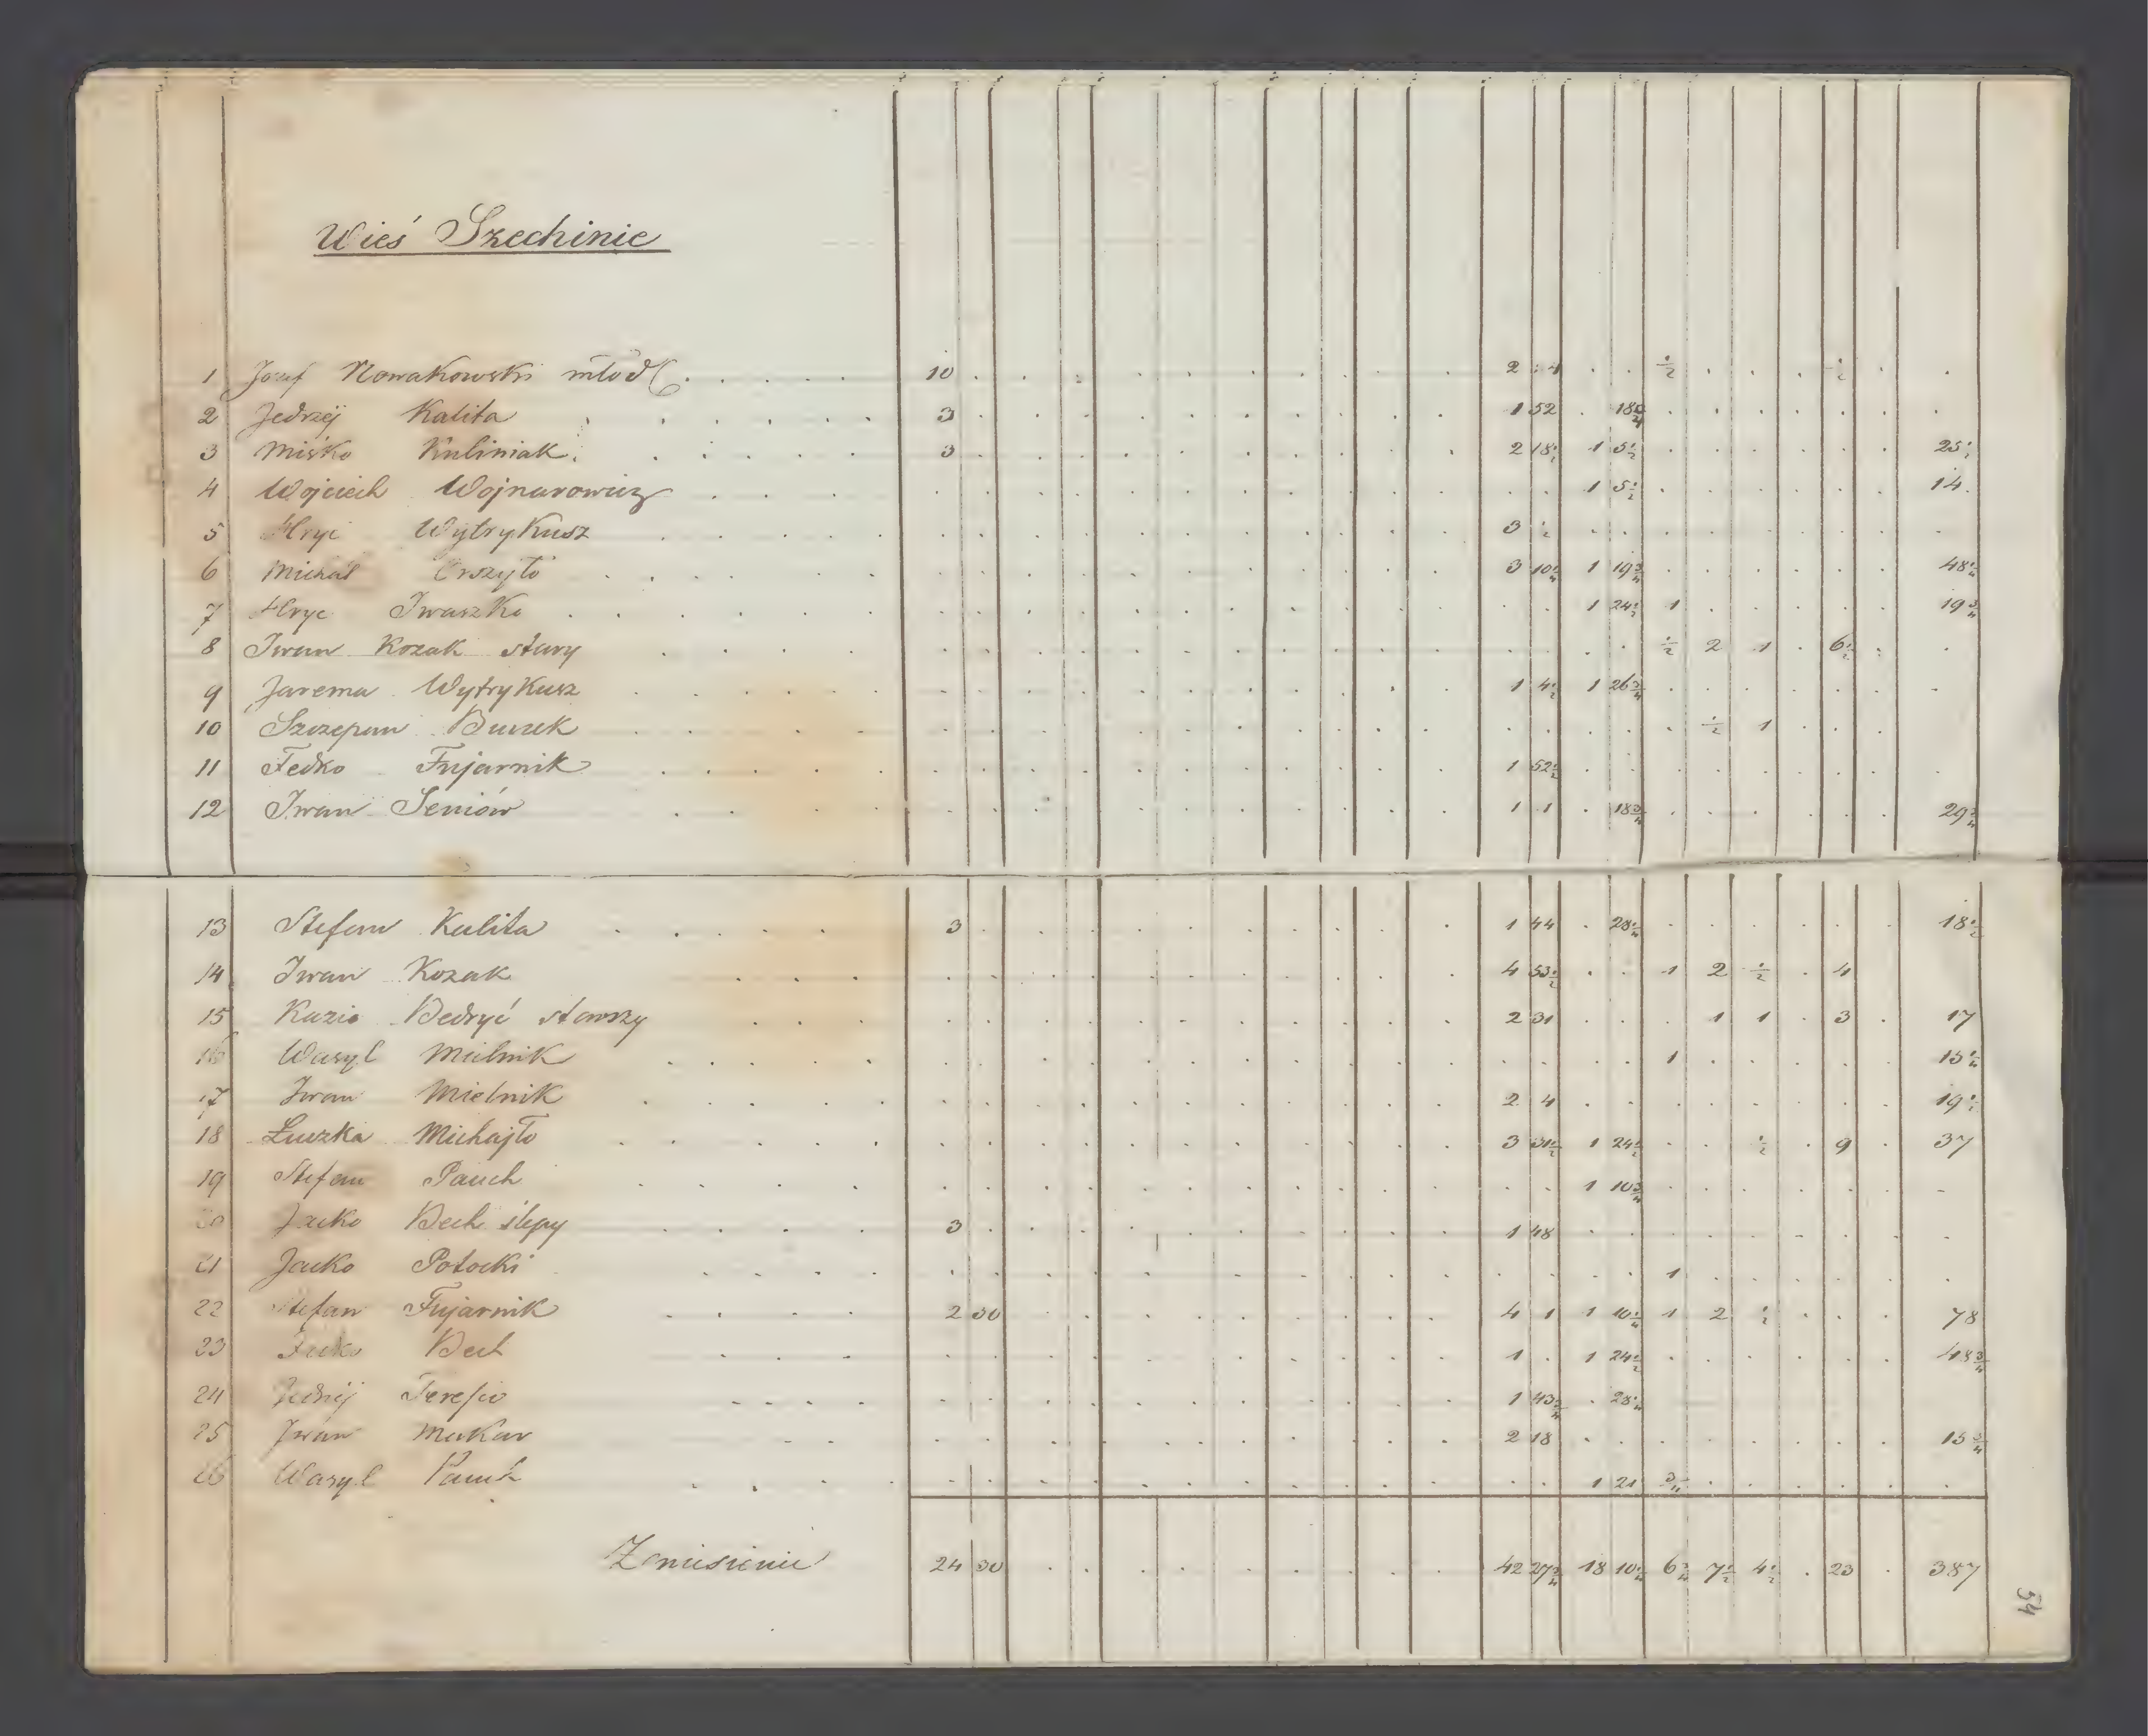 Wieś Szechinie
1 Józef Nowakowski młod 10 2 4 ½ ½
2 Jedrzej Kalita 3 1 52 18¾
3 Miśko Kuliniak 3 2 18½ 1 5½ 25
4 Wojciech Wojnarowicz 1 5½ 14
5 Hryc Wytrykusz 3 ½
6 Michał Orszyło 3 10¼ 1 19¾ 48½
7 Hryc Iwaszko 1 24½ 1 19¾
8 Iwan Kozak stary ½ 2 1 6½
9 Jarema Wytrykusz 1 4½ 1 26¾
10 Szczepan ½ 1
11 Fedko Fujarnik 1 52½
12 Iwan Seniów 1 1 18¾ 29¾
13 Stefan Kalita 3 1 44 28¼ 18½
14 Iwan Kozak 4 53½ 1 2 ½ 4
15 Kazio Bedryć starszy 2 31 1 1 3 17
16 Wasyl Mielnik 1 15¼
17 Iwan Mielnik 2 4 19½
18 Łuczka Michajło 3 31½ 1 24½ ½ 9 37
19 Stefan Pauch 1 10¾
20 Jacko Bech ślepy 3 1 48
21 Jacko Potocki 1
22 Stefan Fujarnik 2 30 4 1 1 10¼ 1 2 ½ 78
23 Bech 1 1 24½ 48¾
24 Jedrzej 1 43¾ 28¼
25 Iwan Makar 2 18 15¾
26 Wasyl Pauch 1 21 ¾
Zaniesienie 24 30 42 27¾ 18 10¼ 6¾ 7½ 4½ 23 387
54